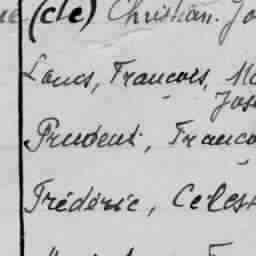 (cle) Christian. Jo
Louis, Francois, Ma
Jos
Prudent, Franco
Frédéric, Celes